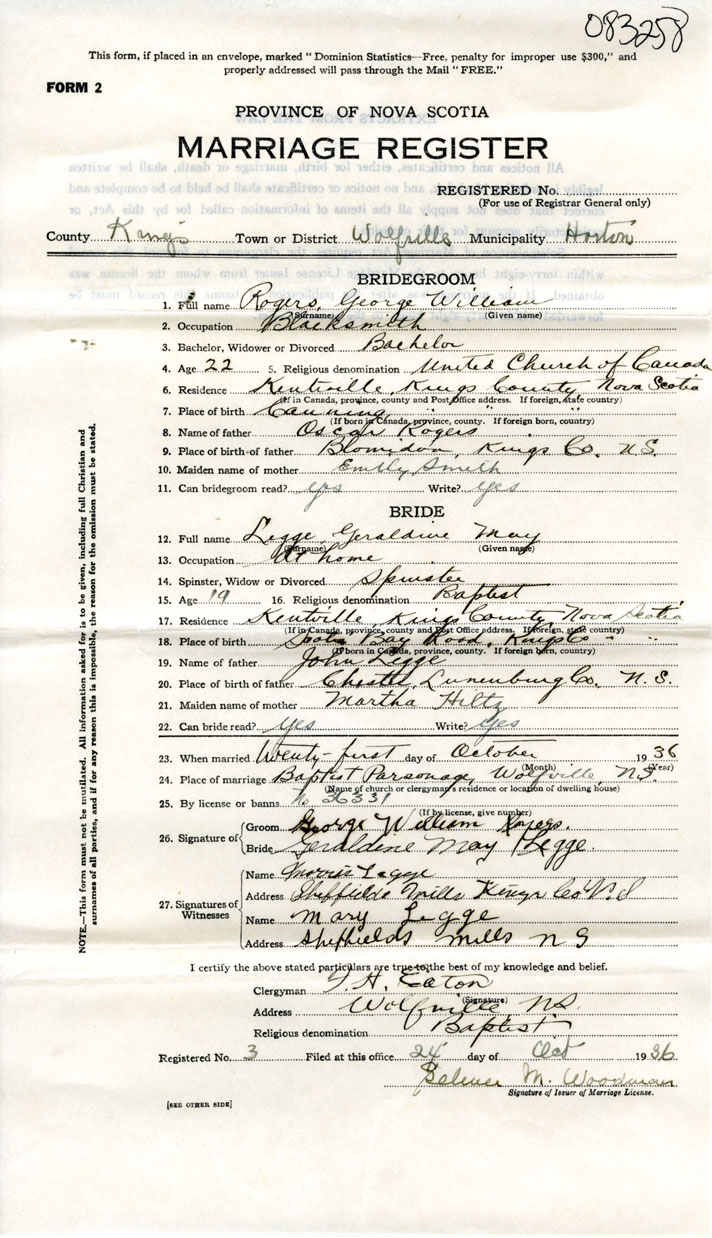 083258
This form, if placed in an envelope, marked "Dominion Statistics—Free, penalty for improper use $300," and
properly addressed will pass through the Mail "FREE."
FORM 2
PROVINCE OF NOVA SCOTIA
MARRIAGE REGISTER
REGISTERED No.
(For use of Registrar General only)
County Kings Town or District Wolfville Municipality Horton
BRIDEGROOM
1. Full name Rogers, George William
(Surname) (Given name)
2. Occupation Blacksmith
3. Bachelor, Widower or Divorced Bachelor
4. Age 22 5. Religious denomination United Church of Canada
6. Residence Kentville, Kings County, Nova Scotia
(If in Canada, province, county and Post Office address. If foreign, state country)
7. Place of birth Canning " " "
(If born in Canada, province, county. If foreign born, country)
8. Name of father Oscar Rogers
9. Place of birth of father Blomidon, Kings Co. N.S.
10. Maiden name of mother Emily Smith
11. Can bridegroom read? yes Write? yes
BRIDE
12. Full name Legge, Geraldine May
(Surname) (Given name)
13. Occupation At home
14. Spinster, Widow or Divorced Spinster
15. Age 19 16. Religious denomination Baptist
17. Residence Kentville, Kings County, Nova Scotia
(If in Canada, province, county and Post Office address. If foreign, state country)
18. Place of birth Scots Bay Road, Kings Co " "
(If born in Canada, province, county. If foreign born, country)
19. Name of father John Legge
20. Place of birth of father Lunenburg Co. N.S.
21. Maiden name of mother Martha Hiltz
22. Can bride read? yes Write? yes
23. When married twenty-first day of October 1936
(Month) (Year)
24. Place of marriage Baptist Parsonage, Wolfville, N.S.
(Name of church or clergyman's residence or location of dwelling house)
25. By license or banns No 36331
(If by license, give number)
26. Signature of Groom George William Rogers.
Bride Geraldine May Legge.
27. Signatures of Witnesses
Name Morris Legge
Address Sheffields Mills Kings Co N.S
Name Mary Legge
Address Sheffields Mills N S
I certify the above stated particulars are true to the best of my knowledge and belief.
Clergyman Eaton
(Signature)
Address Wolfville N.S.
Religious denomination Baptist
Registered No. 3 Filed at this office 24 day of Oct 1936
M. Woodman
Signature of Issuer of Marriage License.
[SEE OTHER SIDE]
NOTE.—This form must not be mutilated. All information asked for is to be given, including full Christian and
surnames of all parties, and if for any reason this is impossible, the reason for the omission must be stated.